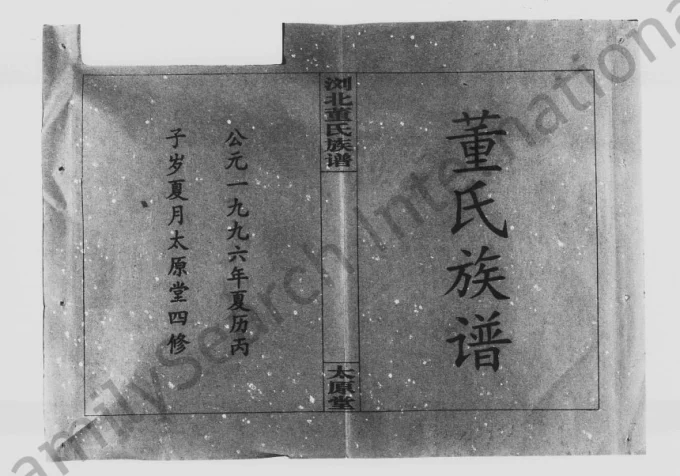 董氏族谱
浏北董氏族谱
太原堂
公元一九九六年夏历丙
子岁夏月太原堂四修
FamilySearch International